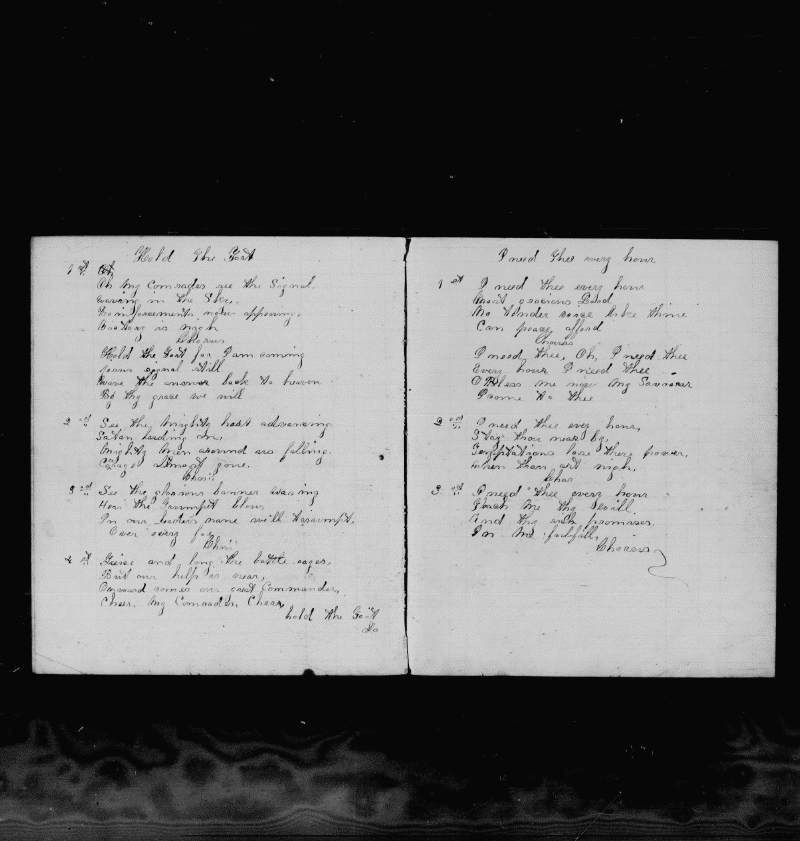 Hold the Fort
1 st Oh
Oh My Comrades see the Signal
waving in the Sky,
now appearing,
is nigh
Chorus
Hold the Fort for I am coming
signal still
wave the answer back to heaven
By thy grace we will
2 nd See the Mighty host advancing
Satan leading on,
Mighty Men around us falling
almost gone.
Chois
3 rd See the glorious banner waving
Hear the Trumpet blow
In our leaders name will triumph,
Over every foe
Chois
4 th Fierce and long the battle rages
But our help is near,
Onward comes our great Commander,
Cheer My Comrades Cheer
hold the Fort
&c
I need thee every hour
1 st I need thee every hour
Most gracious Lord
No tender voice like thine
Can peace afford
Chorus
I need thee, Oh, I need thee
Every hour I need thee
O Bless me now My Saviour
I come to thee
2 nd I need thee every hour,
Stay thou near by,
Temptations lose there power,
when thou art nigh,
Chor
3 rd I need thee every hour
teach Me thy will
And thy rich promises
In Me fulfill,
Chorus